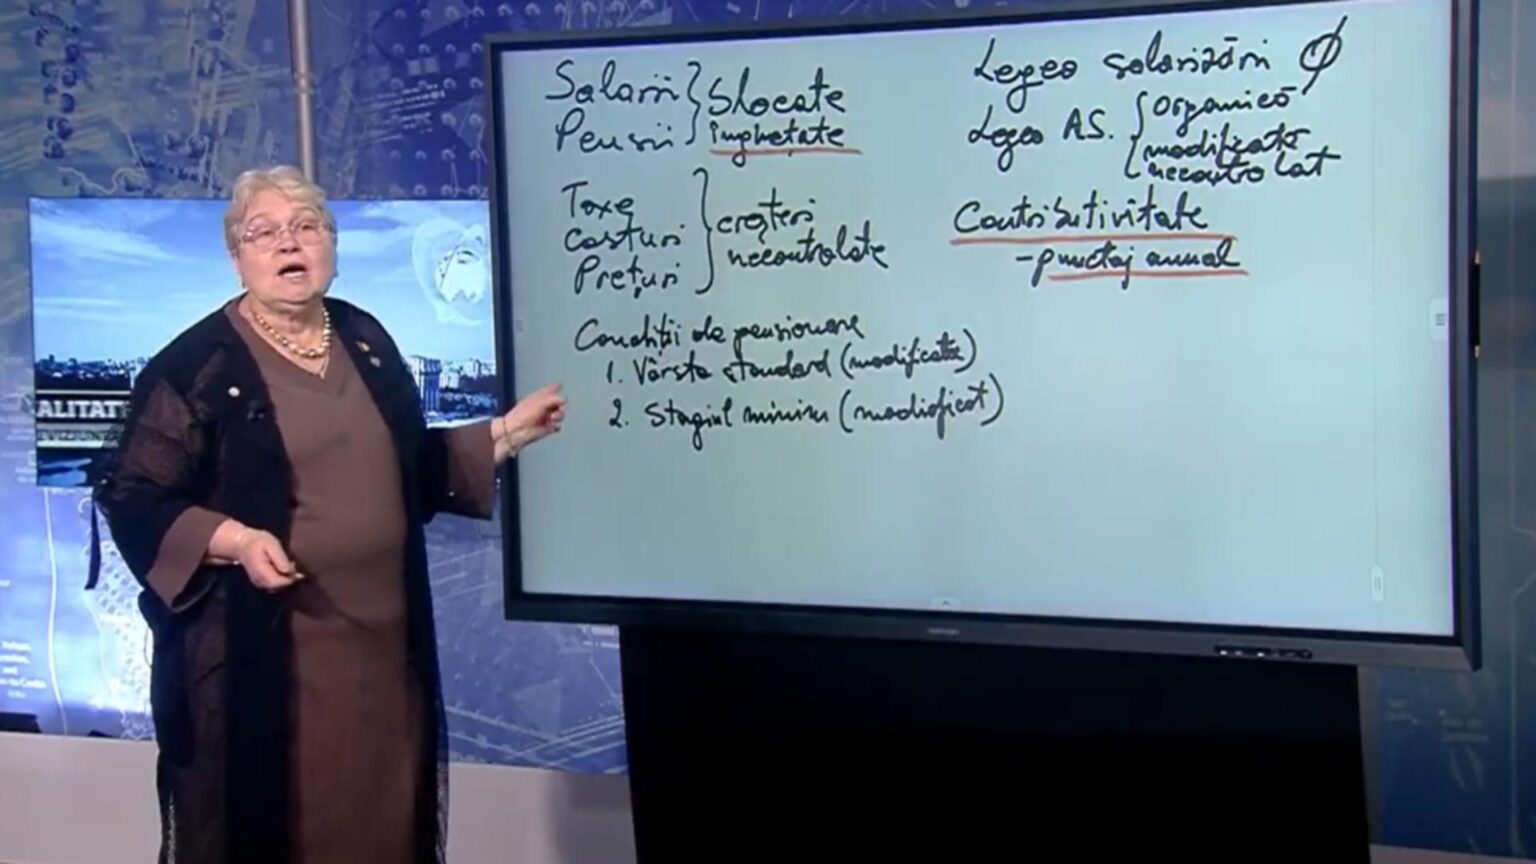 Salarii
Pensii
Blocate
înghețate
Taxe
Costuri
Prețuri
creșteri
necontrolate
Condiții de pensionare
1. Vârsta standard (modificată)
2. Stagiul minim (modificat)
Legea salarizării Ø
Legea AS.
organică
modificată
necontrolat
Contributivitate
- punctaj anual
ALITAT